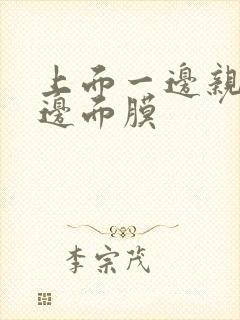 上而一邊親
邊而膜
李宗茂